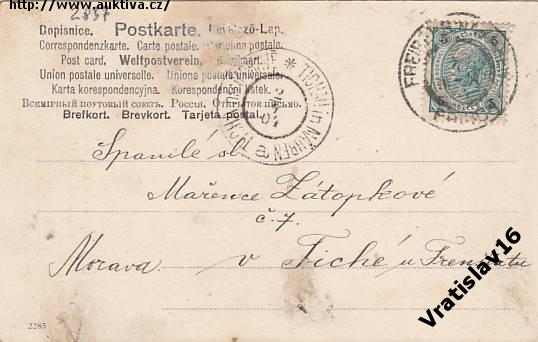 http://www.auktiva.cz/
2837
Dopisnice. Postkarte. Levelező-Lap.
Correspondenzkarte. Carte postale. dopisna
Post card. Weltpostverein.
Union postale universelle. Unione postale universale.
Karta korespondencyjna. Korespondenční lístek.
Всемірный почтовый союзъ. Россія. Открытое письмо.
Brefkort. Brevkort. Tarjeta postal.
TICHAU in MÄHREN
FREIBERG
5 5
Spanilé sl.
Mařence Zátopkové
č. 7.
Morava. v Tiché u Frenštátu
2285
Vratislav16